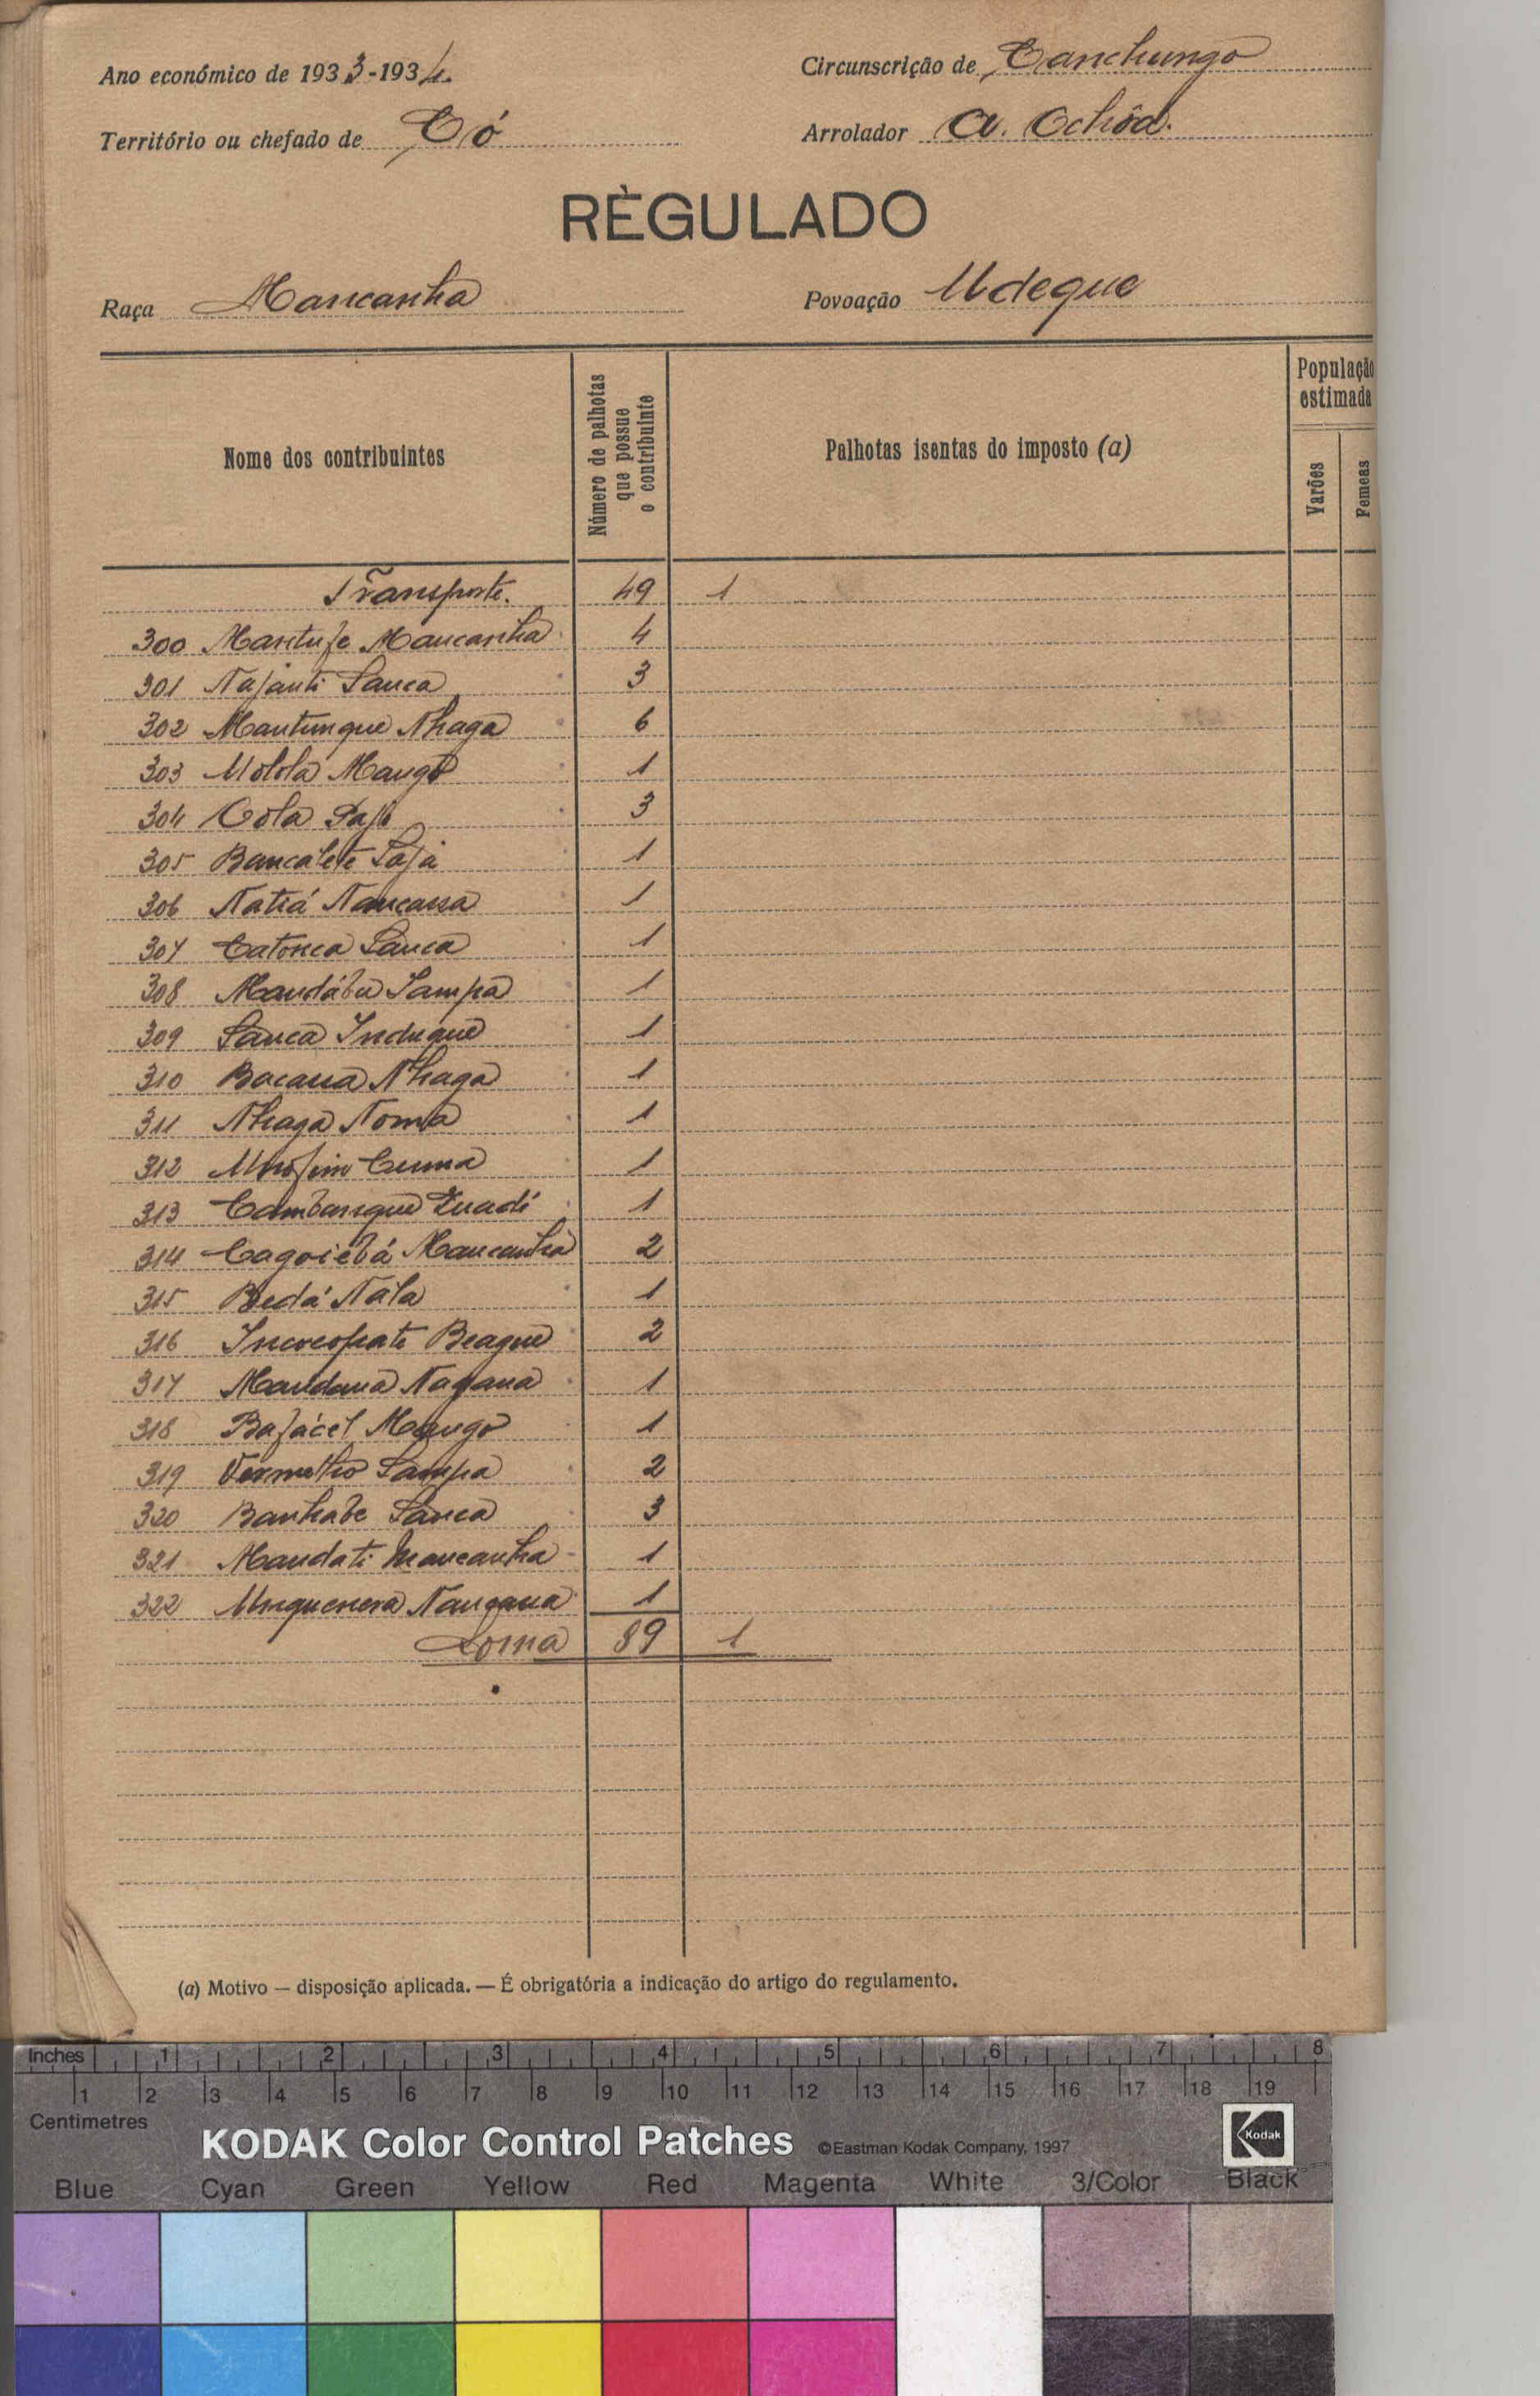 Ano económico de 1933-1934
Circunscrição de Canchungo
Território ou chefado de Có
Arrolador A. Ochôa.
RÈGULADO
Raça Mancanha
Povoação Udeque
Nome dos contribuintes
Número de palhotas que possue o contribuinte
Palhotas isentas do imposto (a)
População estimada
Varões
Femeas
Transporte. 49 1
300 Mantufe Mancanha 4
301 Najanti Sanca 3
302 Mantungue Nhaga 6
303 Ulola Mango 1
304 Cola 3
305 Bancalete Sajá 1
306 Natiá Nancassa 1
307 Catonca Sanca 1
308 Mandábu Sampa 1
309 Sanca Indugue 1
310 Bacana Nhaga 1
311 Nhaga Noma 1
312 Cuma 1
313 Cambangue Zuadi 1
314 Cagoiebá Mancanha 2
315 Bedá Nala 1
316 Beague 2
317 Mandana Nagana 1
318 Bafácel Mango 1
319 Vermelho Sampa 2
320 Banhabe Sanca 3
321 Mandati Mancanha 1
322 Unguenera Nangana 1
Soma 89 1
(a) Motivo — disposição aplicada. — É obrigatória a indicação do artigo do regulamento.
Inches 1 2 3 4 5 6 7 8
1 2 3 4 5 6 7 8 9 10 11 12 13 14 15 16 17 18 19
Centimetres
KODAK Color Control Patches ©Eastman Kodak Company, 1997 Kodak
Blue Cyan Green Yellow Red Magenta White 3/Color Black